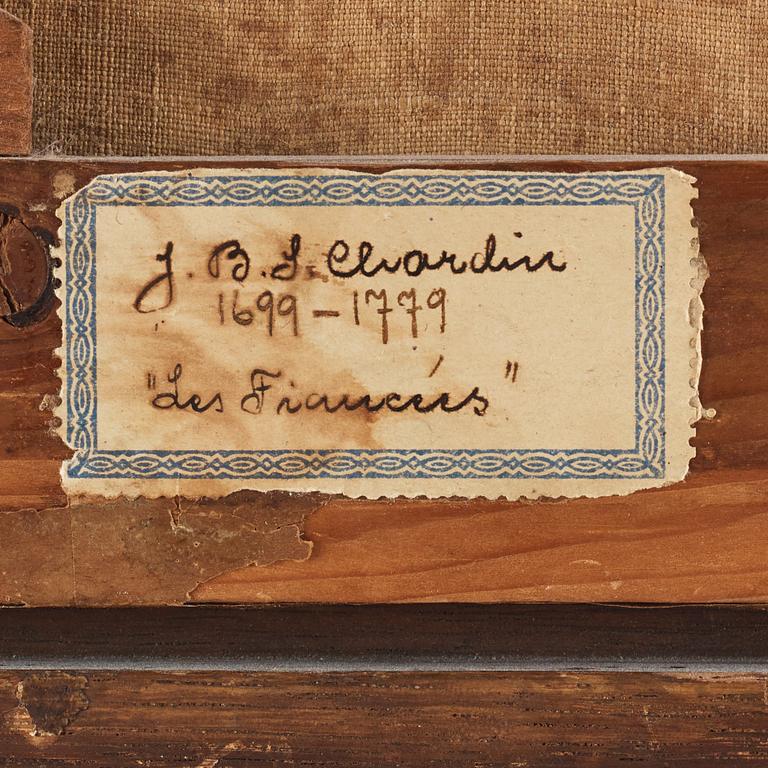 J. B. S. Chardin
1699 - 1779
"Les Fiancées"